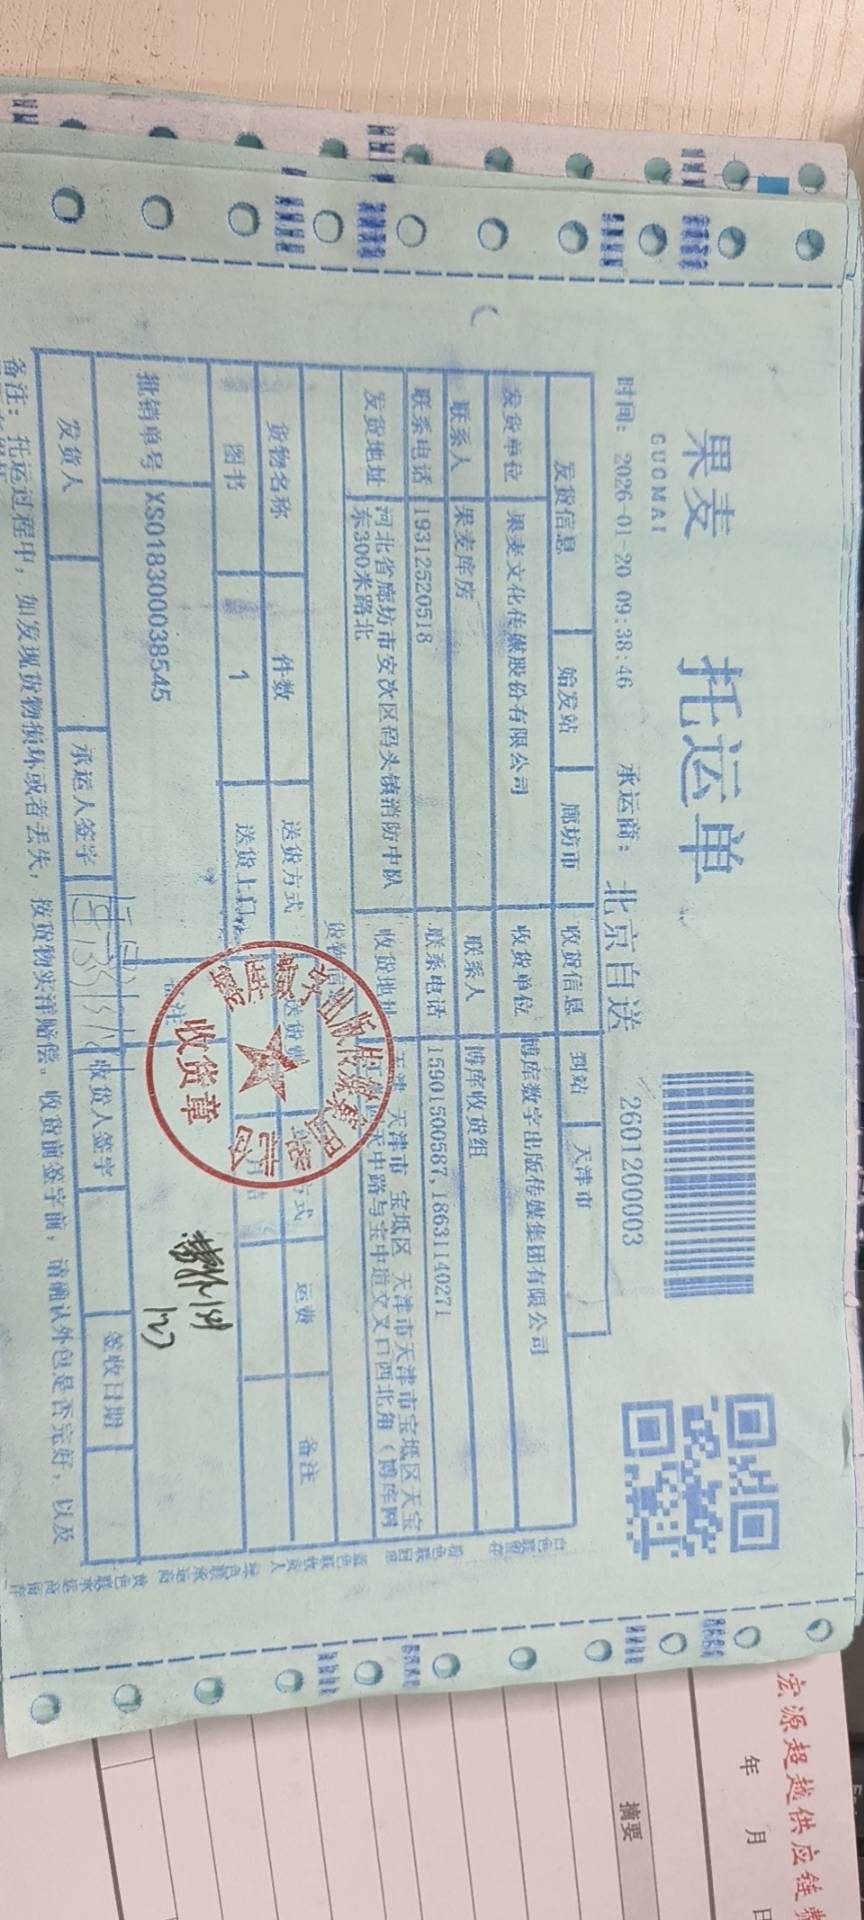 果麦
GUOMAI
托运单
时间: 2026-01-20 09:38:46 承运商: 北京自送 2601200003
发货信息 始发站 廊坊市 收货信息 到站 天津市
发货单位 果麦文化传媒股份有限公司 收货单位 博库数字出版传媒集团有限公司
联系人 果麦库房 联系人 博库收货组
联系电话 19312520518 联系电话 15901500587,18631140271
发货地址 河北省廊坊市安次区码头镇消防中队 收货地址 天津 天津市 宝坻区 天津市天津市宝坻区天宝
东300米路北 中路与宝中道交叉口西北角（博库网
货物名称 件数 送货方式 送货费 方式 运费 备注
图书 1 送货上门
批销单号 XS018300038545 备注
收货章
发货人 承运人签字 收货人签字 签收日期
备注: 托运过程中，如发现货物损坏或者丢失，按货物实洋赔偿。收货前签字前，请确认外包是否完好，以及
白色联留存 粉色联回单 蓝色联收货人 绿色联承运商 黄色联承运商留存
宏源超越供应链
年 月 日
摘要